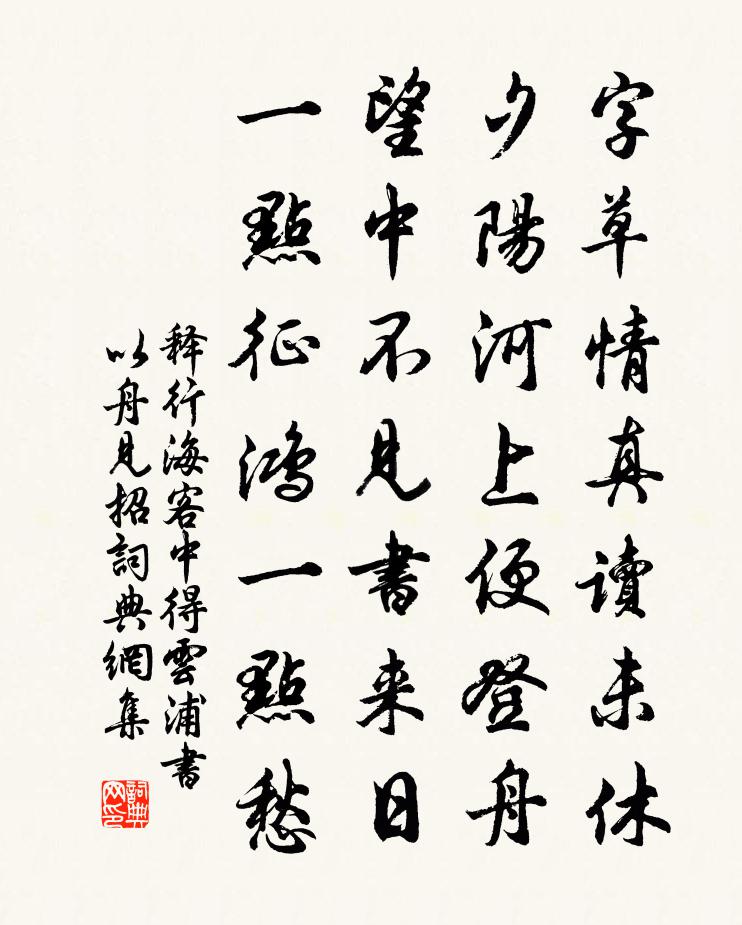 字草情真讀未休
夕陽河上便登舟
望中不見書来日
一點征鴻一點愁
释行海客中得雲浦書
以舟見招詞典網集
詞典网印